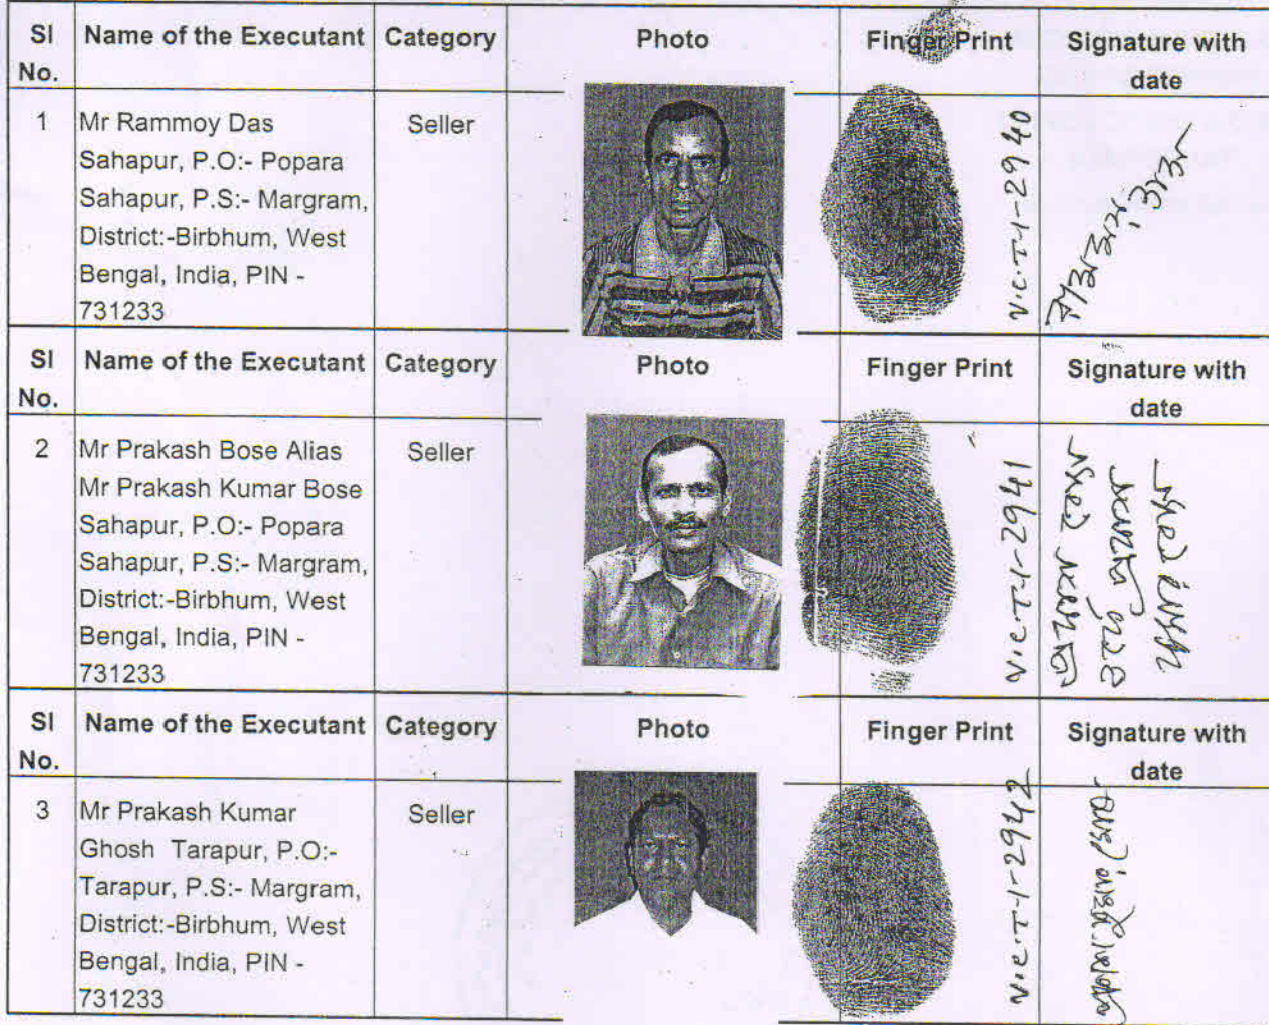 Sl No. Name of the Executant Category Photo Finger Print Signature with date
1 Mr Rammoy Das Seller
Sahapur, P.O:- Popara
Sahapur, P.S:- Margram,
District:-Birbhum, West
Bengal, India, PIN -
731233
V.C.T-1-2940
Sl No. Name of the Executant Category Photo Finger Print Signature with date
2 Mr Prakash Bose Alias Seller
Mr Prakash Kumar Bose
Sahapur, P.O:- Popara
Sahapur, P.S:- Margram,
District:-Birbhum, West
Bengal, India, PIN -
731233
V.C.T-1-2941
Sl No. Name of the Executant Category Photo Finger Print Signature with date
3 Mr Prakash Kumar Seller
Ghosh Tarapur, P.O:-
Tarapur, P.S:- Margram,
District:-Birbhum, West
Bengal, India, PIN -
731233
V.C.T-1-2942